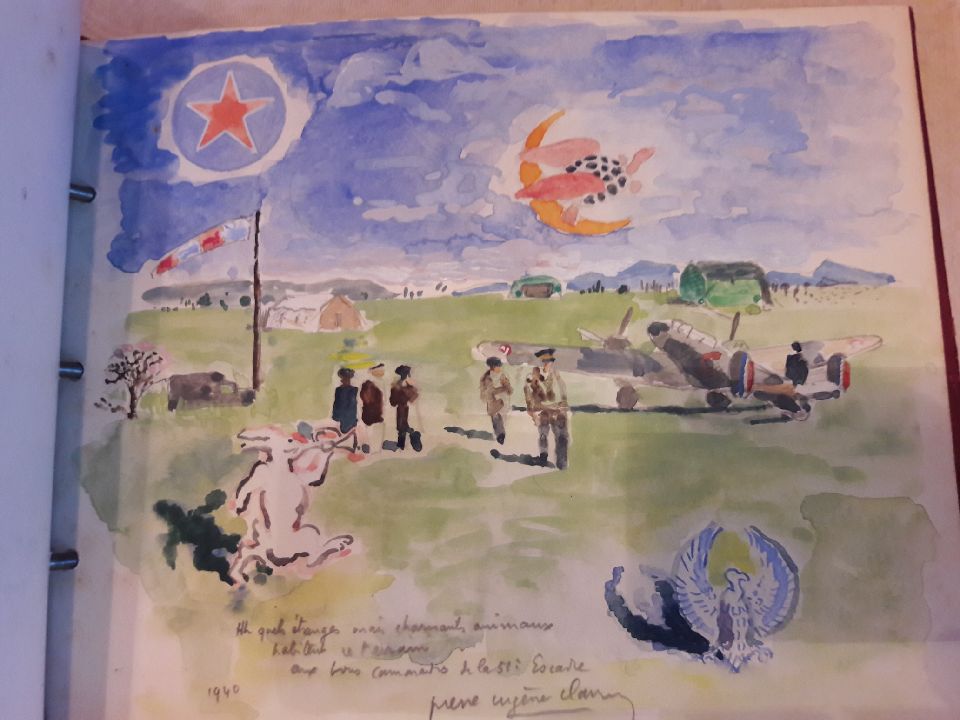 Ah quels étranges mais charmants animaux
habitent ce terrain
aux bons camarades de la 51e Escadre
1940
pierre eugène Clairin